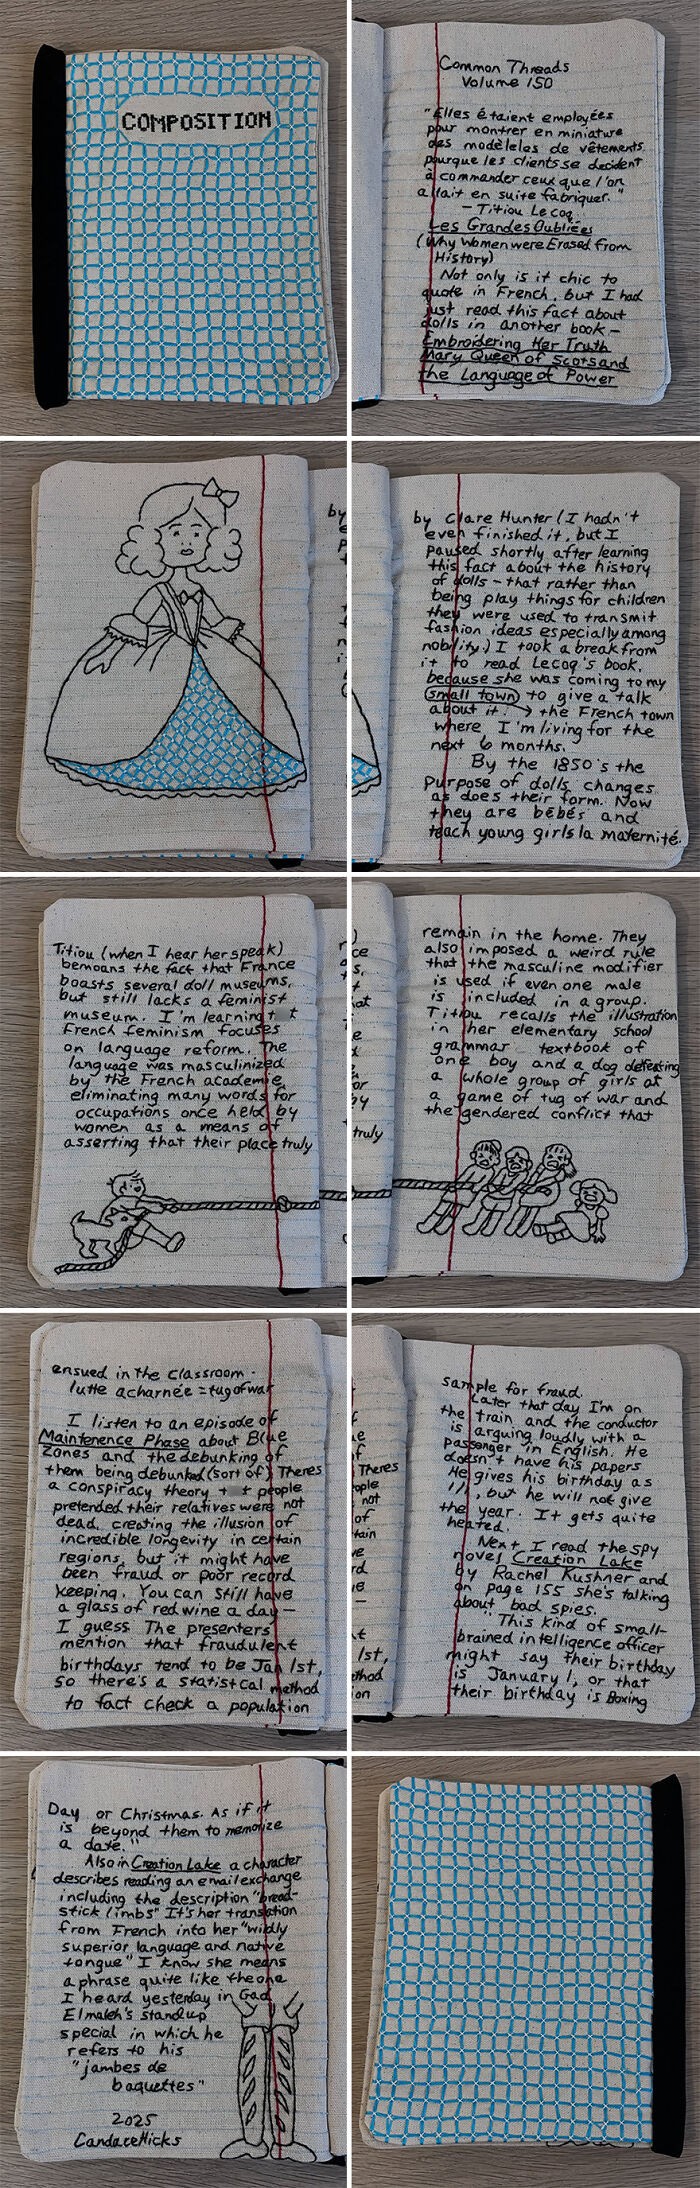 COMPOSITION
Common Threads
Volume 150
"Elles étaient employées
pour montrer en miniature
des modèleles de vêtements
pourque les clients se decident
à commander ceux que l'on
allait en suite fabriquer."
- Titiou Lecoq
Les Grandes Oubliées
(Why Women were Erased from
History)
Not only is it chic to
quote in French, but I had
just read this fact about
dolls in another book -
Embroidering Her Truth
Mary Queen of Scots and
the Language of Power
by Clare Hunter (I hadn't
even finished it, but I
paused shortly after learning
this fact about the history
of dolls - that rather than
being play things for children
they were used to transmit
fashion ideas especially among
nobility.) I took a break from
it to read Lecoq's book,
because she was coming to my
small town to give a talk
about it. → the French town
where I'm living for the
next 6 months.
By the 1850's the
purpose of dolls changes
as does their form. Now
they are bébés and
teach young girls la maternité.
Titiou (when I hear her speak)
bemoans the fact that France
boasts several doll museums,
but still lacks a feminist
museum. I'm learning t t
French feminism focuses
on language reform. The
language was masculinized
by the French academie,
eliminating many words for
occupations once held by
women as a means of
asserting that their place truly
remain in the home. They
also imposed a weird rule
that the masculine modifier
is used if even one male
is included in a group.
Titiou recalls the illustration
in her elementary school
grammar textbook of
one boy and a dog defeating
a whole group of girls at
a game of tug of war and
the gendered conflict that
ensued in the classroom.
lutte acharnée = tug of war
I listen to an episode of
Maintenence Phase about Blue
Zones and the debunking of
them being debunked (sort of) Theres
a conspiracy theory t t people
pretended their relatives were not
dead, creating the illusion of
incredible longevity in certain
regions, but it might have
been fraud or poor record
keeping. You can still have
a glass of red wine a day -
I guess The presenters
mention that fraudulent
birthdays tend to be Jan 1st,
so there's a statistcal method
to fact check a population
sample for fraud.
Later that day I'm on
the train and the conductor
is arguing loudly with a
passenger in English. He
doesn't have his papers
He gives his birthday as
1/1, but he will not give
the year. It gets quite
heated.
Next I read the spy
novel Creation Lake
by Rachel Kushner and
on page 155 she's talking
about bad spies.
"This kind of small-
brained intelligence officer
might say their birthday
is January 1, or that
their birthday is Boxing
Day or Christmas. As if it
is beyond them to memorize
a date."
Also in Creation Lake a character
describes reading an email exchange
including the description "bread-
stick limbs" It's her translation
from French into her "wildly
superior language and native
tongue" I know she means
a phrase quite like the one
I heard yesterday in Gad
Elmaleh's standup
special in which he
refers to his
"jambes de
baguettes"
2025
Candace Hicks